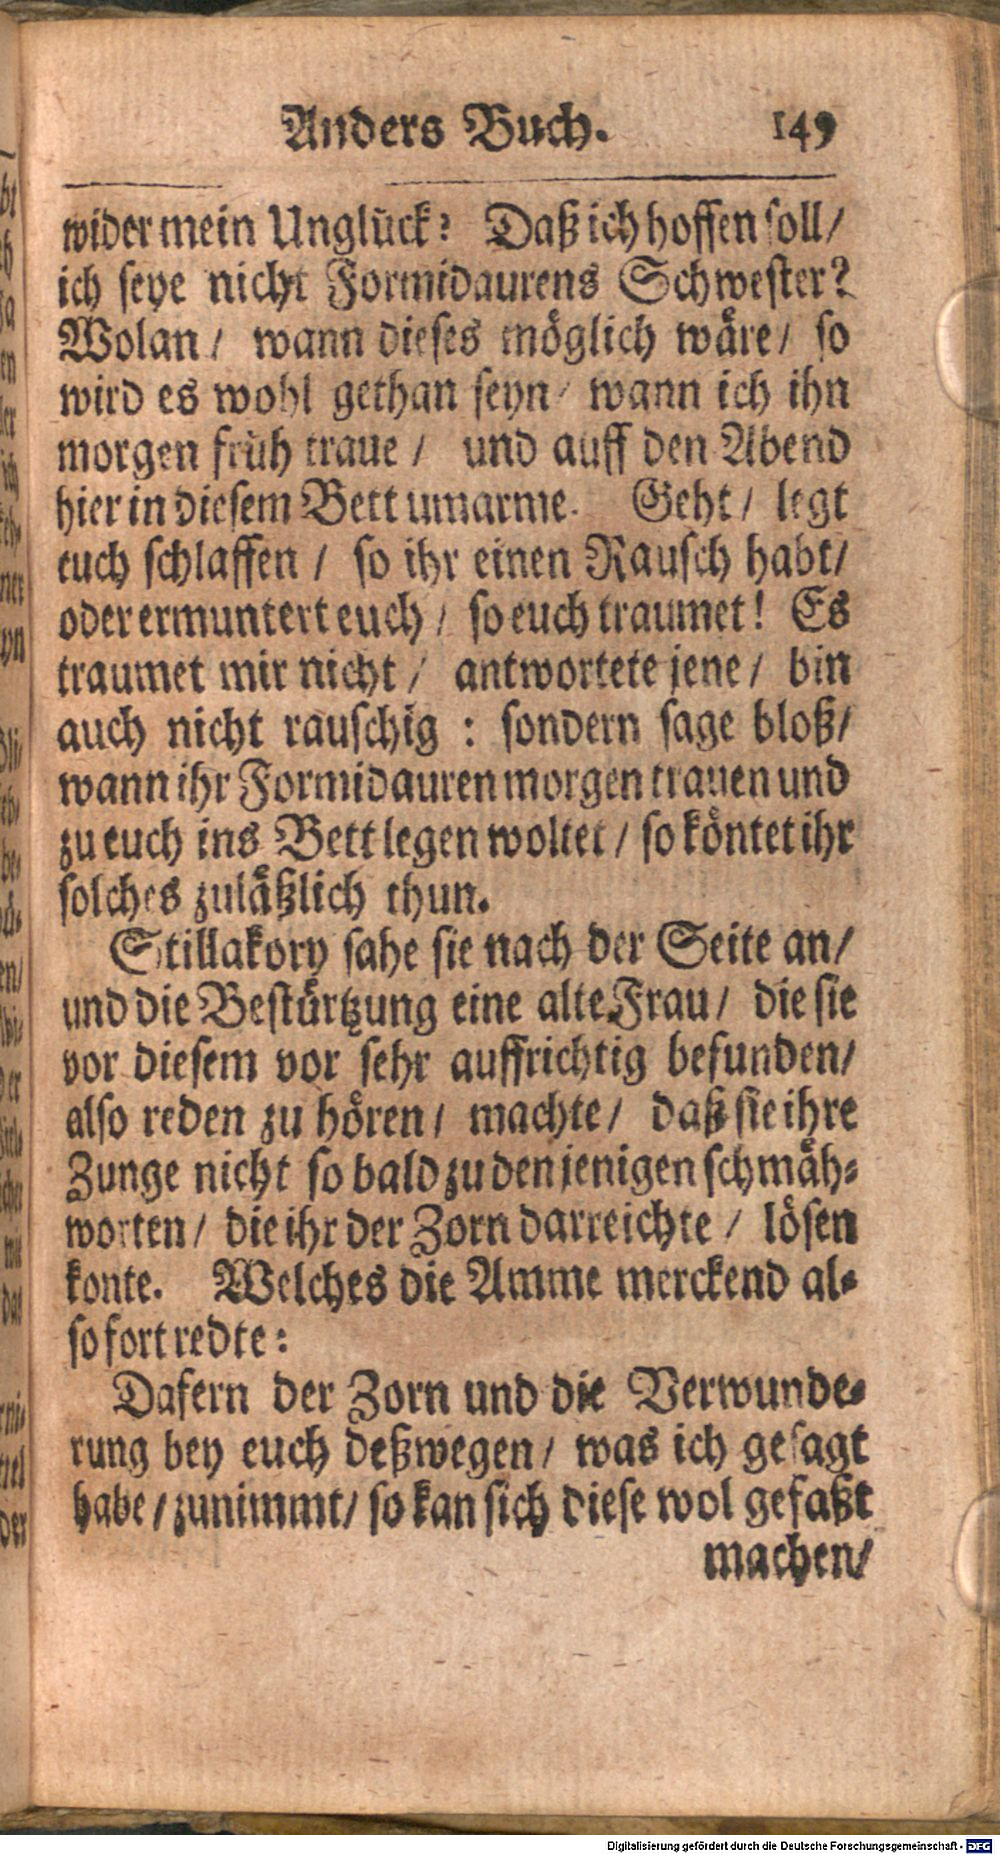 Anders Buch. 149
wider mein Unglück? Daß ich hoffen soll/
ich seye nicht Formidaurens Schwester?
Wolan/ wann dieses möglich wäre/ so
wird es wohl gethan seyn/ wann ich ihn
morgen früh traue/ und auff den Abend
hier in diesem Bett umarme. Geht/ legt
euch schlaffen/ so ihr einen Rausch habt/
oder ermuntert euch/ so euch traumet! Es
traumet mir nicht/ antwortete jene/ bin
auch nicht rauschig: sondern sage bloß/
wann ihr Formidauren morgen trauen und
zu euch ins Bett legen woltet/ so köntet ihr
solches zuläßlich thun.
Stillakory sahe sie nach der Seite an/
und die Bestürtzung eine alte Frau/ die sie
vor diesem vor sehr auffrichtig befunden/
also reden zu hören/ machte/ daß sie ihre
Zunge nicht so bald zu denjenigen schmäh-
worten/ die ihr der Zorn darreichte/ lösen
konte. Welches die Amme merckend al-
so fort redte:
Dafern der Zorn und die Verwunde-
rung bey euch deßwegen/ was ich gesagt
habe/ zunimmt/ so kan sich diese wol gefaßt
machen/
Digitalisierung gefördert durch die Deutsche Forschungsgemeinschaft - DFG